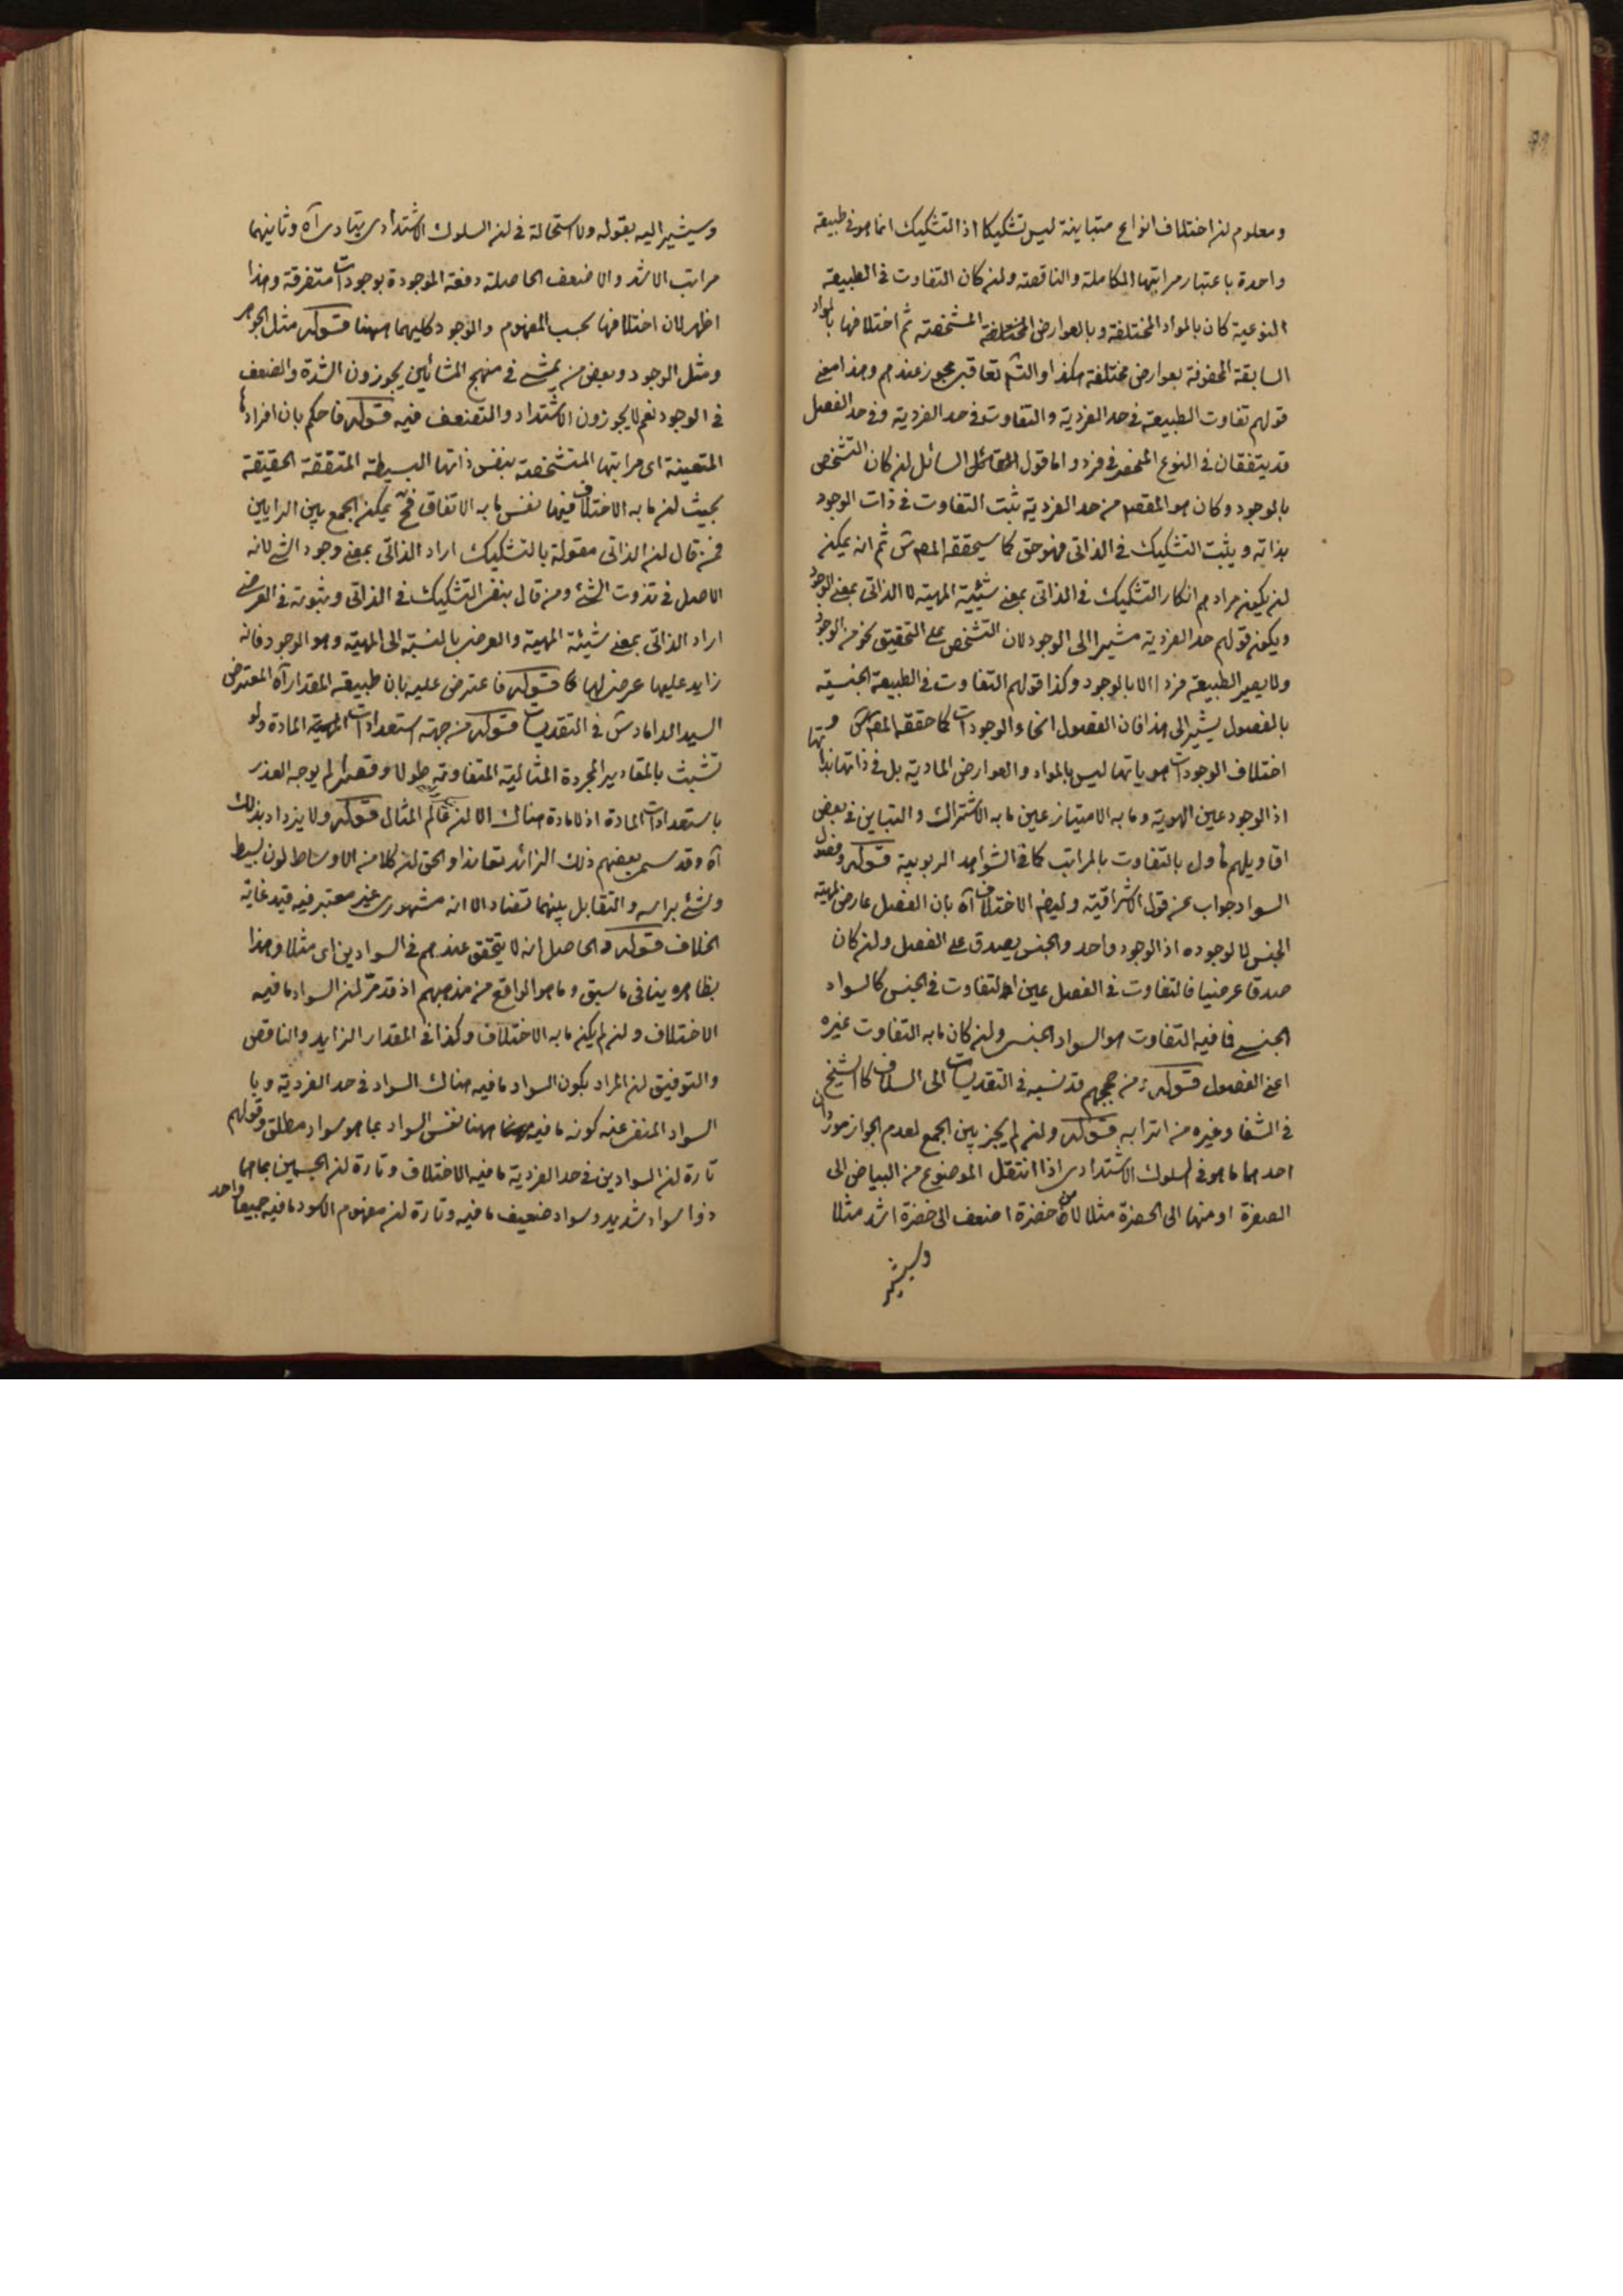 ومعلوم ان اختلاف انواع متباينة ليس تشكيكا اذ التشكيك انما هو فى طبيعة
واحدة باعتبار مراتبها الكاملة والناقصة وان كان التفاوت فى الطبيعة
النوعية كان بالمواد المختلفة وبالعوارض المختلفة المشخصة ثم اختلافها بالمواد
السابقة المحفوفة بعوارض مختلفة هكذا والتسَ تعاقبى مجوز عندهم وهذا معنى
قولهم تفاوت الطبيعة فى حد الفردية والتفاوت فى حد الفردية وفى حد الفصل
قد يتفقان فى النوع المنحصر فى فرد واما قول القائل السائل ان كان التشخص
بالوجود وكان هو المقصود من حد الفردية ثبت التفاوت فى ذات الوجود
بذاته ويثبت التشكيك فى الذاتى فهو حق كما سيحققه المص س ثم انه يمكن
ان يكون مرادهم انكار التشكيك فى الذاتى بمعنى شيئية المهية لا الذاتى بمعنى الوجود
ويكون قولهم حد الفردية مشيرا الى الوجود لان التشخص على التحقيق نحو من الوجود
ولا يصير الطبيعة فردا الا بالوجود وكذا قولهم التفاوت فى الطبيعة الجنسية
بالفصول يشير الى هذا فان الفصول انحاء الوجودات كما حققه المص س و
اختلاف الوجودات هوياتها ليس بالمواد والعوارض المادية بل فى ذاتها بذاتها
اذ الوجود عين الهوية وما به الامتياز عين ما به الاشتراك والتباين فى بعض
اقاويلهم ماول بالتفاوت بالمراتب كما فى الشواهد الربوبية قوله وفصول
السواد جواب عن قول الاشراقية وليفه الاختلاف آه بان الفصل عارض لمهية
الجنس لا لوجوده اذ الوجود واحد والجنس يصدق على الفصل وان كان
صدقا عرضيا فالتفاوت فى الفصل عين التفاوت فى الجنس كالسواد
الجنسى فما فيه التفاوت هو السواد الجنسى وان كان ما به التفاوت غيره
اعنى الفصول قوله من حججهم قد نسبه فى التقديسات الى السلاف كالشيخ
فى الشفا وغيره من اترابه قوله وان لم يجز بين الجمع لعدم الجواز موردان
احدهما ما هو فى السلوك الاشتدادى اذا انتقل الموضوع من البياض الى
الصفرة او منها الى الخضرة مثلا لا من خضرة اضعف الى خضرة اشد مثلا
وسيشير
وسيشير اليه بقوله ولا استحالة فى ان السلوك الاشتدادى يتادى آه وثانيهما
مراتب الاشد والاضعف الحاصلة دفعة الموجودة بوجودات متفرقة وهذا
اظهر لان اختلافها بحسب المفهوم والوجود كليهما ههنا قوله مثل الجوهر
ومثل الوجود وبعض من يمشى فى منهج المشائين يجوزون الشدة والضعف
فى الوجود نعم لا يجوزون الاشتداد والتضعف فيه قوله فاحكم بان افرادها
المتعينة اى مراتبها المتشخصة بنفس ذاتها البسيطة المتفقة الحقيقة
بحيث ان ما به الاختلاف فيها نفس ما به الاتفاق فح يمكن الجمع بين الرايين
فمن قال ان الذاتى مقولة بالتشكيك اراد الذاتى بمعنى وجود الشى لانه
الاصل فى تذوت الشئ ومن قال بنفى التشكيك فى الذاتى وثبوته فى العرضى
اراد الذاتى بمعنى شيئة المهية والعرضى بالنسبة الى المهية وهو الوجود فانه
زايد عليها عرضى لها كما قوله فاعترض عليه بان طبيعة المقدار آه المعترض
السيد الداماد س فى التقديسات قوله من جهة استعدادات المهية المادة ولو
تشبث بالمقادير المجردة المثالية المتفاوتة طولا وقصرا لم يوجه العذر
باستعدادات المادة اذ لا مادة هناك الا ان عالم المثال قوله ولا يزداد بذلك
آه وقد سمى بعضهم ذلك الزائد تعاندا والحق ان كلا من الاوساط لون بسيط
وشئ براسه والتقابل بينهما تضاد الا انه مشهورى غير معتبر فيه قيد غاية
الخلاف قوله والحاصل انه لا يتحقق عندهم فى السوادين اى مثلا وهذا
بظاهره ينافى ما سبق وما هو الواقع من مذهبهم اذ قد مرّ ان السواد ما فيه
الاختلاف وان لم يكن ما به الاختلاف وكذا فى المقدار الزايد والناقص
والتوفيق ان المراد بكون السواد ما فيه هناك السواد فى حد الفردية وبا
السواد المنفى عنه كونه ما فيه ههنا نفس السواد بما هو سواد مطلق وقولهم
تارة ان السوادين فى حد الفردية ما فيه الاختلاف وتارة ان الجسمين بما هما
ذوا سواد شديد وسواد ضعيف ما فيه وتارة ان مفهوم الاسود ما فيه جميعا واحد